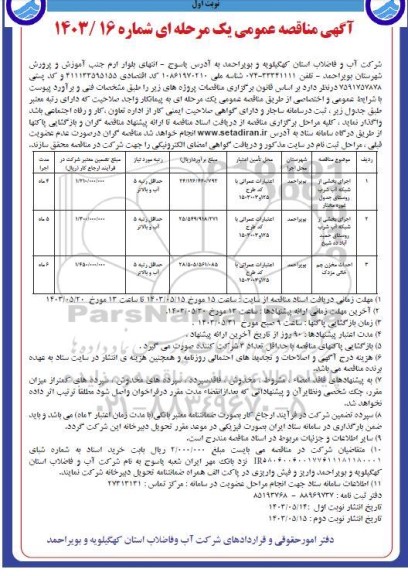 نوبت اول
آگهی مناقصه عمومی یک مرحله ای شماره ۱۶ /۱۴۰۳
شرکت آب و فاضلاب استان کهگیلویه و بویراحمد به آدرس یاسوج - انتهای بلوار ارم جنب آموزش و پرورش
شهرستان بویراحمد - تلفن ۳۳۳۴۱۱۱۱-۰۷۴ شناسه ملی ۱۰۸۶۱۹۷۰۲۱۰ کد اقتصادی ۴۱۱۱۳۳۵۹۵۱۵۵ و کد پستی
۷۵۹۱۷۵۷۸۷۸ در نظر دارد بر اساس قانون برگزاری مناقصات پروژه های زیر را طبق مشخصات فنی و برآورد پیوست
با شرایط عمومی و اختصاصی از طریق مناقصه عمومی یک مرحله ای به پیمانکار واجد صلاحیت که دارای رتبه معتبر
طبق جدول زیر ، ثبت درسامانه ساجار و دارای گواهی صلاحیت ایمنی کار از اداره تعاون ،کار و رفاه اجتماعی باشد
واگذار نماید . کلیه مراحل برگزاری مناقصه از دریافت اسناد مناقصه تا ارائه پیشنهاد مناقصه گران و بازگشایی پاکتها
از طریق درگاه سامانه ستاد به آدرس www.setadiran.ir انجام خواهد شد. مناقصه گران درصورت عدم عضویت
قبلی ، مراحل ثبت نام در سایت مذکور و دریافت گواهی امضای الکترونیکی را جهت شرکت در مناقصه محقق سازند.
ردیف موضوع مناقصه شهرستان محل اجرا محل تأمین اعتبار مبلغ برآورد(ریال) رتبه مورد نیاز مبلغ تضمین معتبر شرکت در فرآیند ارجاع کار (ریال) مدت اجرا
۱ اجرای بخشی از شبکه آب شرب روستای جدول بویراحمد اعتبارات عمرانی با کد طرح حداقل رتبه ۵ آب و بالاتر ۴ ماه
۲ اجرای بخشی از شبکه آب شرب روستای بویراحمد اعتبارات عمرانی با کد طرح حداقل رتبه ۵ آب و بالاتر ۵ ماه
۳ احداث مخزن بویراحمد اعتبارات عمرانی با کد طرح حداقل رتبه ۵ آب و بالاتر ۶ ماه
۱) مهلت زمانی دریافت اسناد مناقصه از سایت : ساعت ۱۵ مورخ ۱۴۰۳/۰۵/۱۵ تا ساعت ۱۳ مورخ ۱۴۰۳/۰۵/۲۰
۲) آخرین مهلت زمانی ارائه پیشنهادها : ساعت ۱۳ مورخ ۱۴۰۳/۰۵/۳۰.
۳) زمان بازگشایی پاکتها : ساعت ۹ صبح مورخ ۱۴۰۳/۰۵/۳۱.
۴) مدت اعتبار پیشنهادها : ۹۰ روز از تاریخ آخرین ارائه پیشنهاد .
۵) بازگشایی پاکتهای مناقصه با حداقل تعداد ۳ شرکت کننده صورت می گیرد.
۶) هزینه درج آگهی و اصلاحات و تجدید های احتمالی روزنامه و همچنین هزینه ی انتشار در سایت ستاد به عهده
برنده مناقصه می باشد.
۷) به پیشنهادهای فاقد امضاء ، مشروط ، مخدوش ، فاقد سپرده ، سپرده های مخدوش، سپرده های کمتر از میزان
مقرر، چک شخصی ونظایر آن و پیشنهاداتی که بعد از انقضاء مدت مقرر در فراخوان واصل شود مطلقا ترتیب اثر داده
نخواهد شد.
۸) سپرده تضمین شرکت در فرآیند ارجاع کار بصورت ضمانتنامه معتبر بانکی (با مدت زمان اعتبار ۳ ماه) می باشد و باید
ضمن بارگذاری در سامانه ستاد ایران بصورت فیزیکی در موعد مقرر تحویل دبیرخانه این شرکت گردد.
۹) سایر اطلاعات و جزئیات مربوط در اسناد مناقصه مندرج است.
۱۰) متقاضیان شرکت در مناقصه می بایست مبلغ ۲/۰۰۰/۰۰۰ ریال بابت خرید اسناد به شماره شبای
نزد بانک مهر ایران شعبه یاسوج به نام شرکت آب و فاضلاب استان
کهگیلویه و بویراحمد واریز و فیش واریزی در پاکت الف همراه ضمانتنامه تحویل دبیرخانه شرکت نمایند.
۱۱) اطلاعات سامانه ستاد جهت انجام مراحل عضویت در سامانه : مرکز تماس : ۲۷۳۱۳۱۳۱
دفتر ثبت نامه : ۸۸۹۶۹۷۳۷ - ۸۵۱۹۳۷۶۸
تاریخ انتشار نوبت اول :۱۴۰۳/۰۵/۱۴
تاریخ انتشار نوبت دوم : ۱۴۰۳/۰۵/۱۵
دفتر امور حقوقی و قراردادهای شرکت آب وفاضلاب استان کهگیلویه و بویراحمد